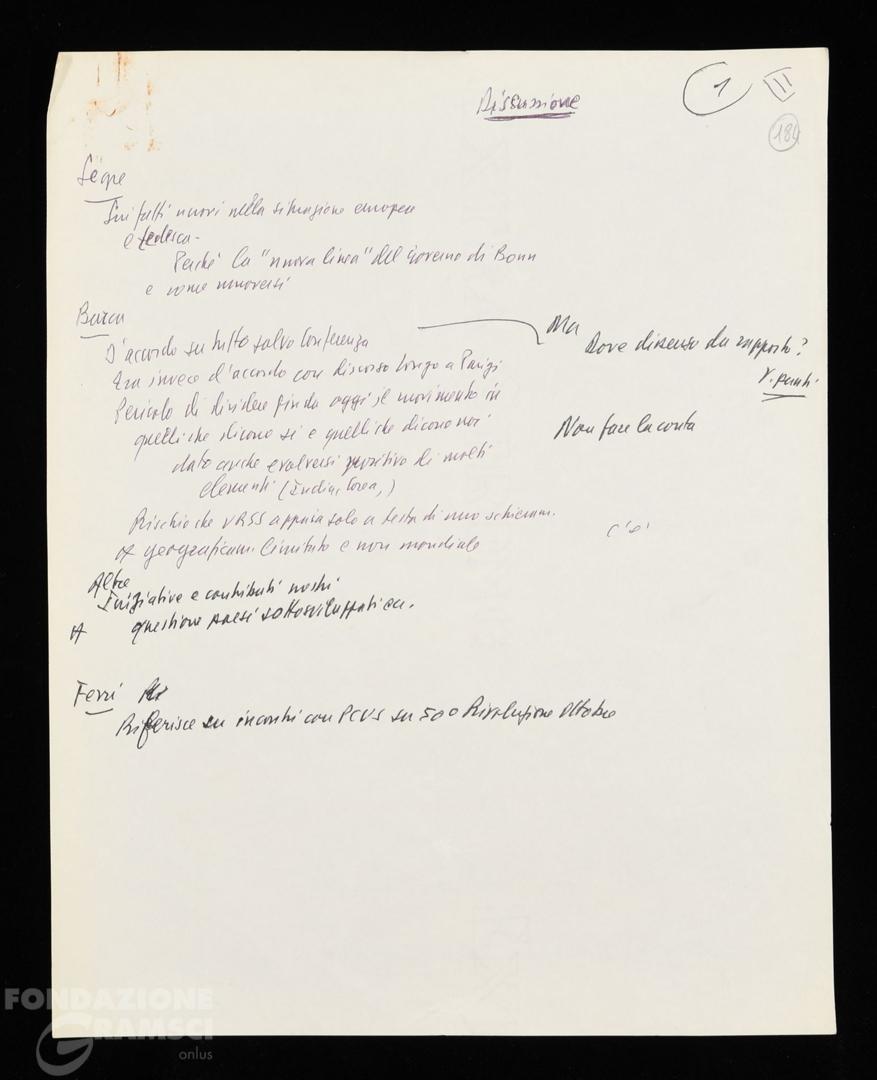 Discussione
1
II
184
Segre
Sui fatti nuovi nella situazione europea
e tedesca -
Perché la "nuova linea" del governo di Bonn
e come muoversi
Barca
D'accordo su tutto salvo Conferenza
Era invece d'accordo con discorso Longo a Parigi
Pericolo di dividere fin da oggi il movimento in
quelli che dicono sì e quelli che dicono no
dato anche evolversi positivo di molti
elementi (India, Corea,)
Rischio che URSS appaia solo a testa di uno schieram.
geograficam. limitato e non mondiale
Ma
Dove dissenso da rapporto?
V. punti.
Non fare la conta
c'è
Altre
Iniziative e contributi nostri
questione paesi sottosviluppati ecc.
Ferri
Riferisce su incontri con PCUS su 50o Rivoluzione Ottobre
FONDAZIONE
GRAMSCI
onlus